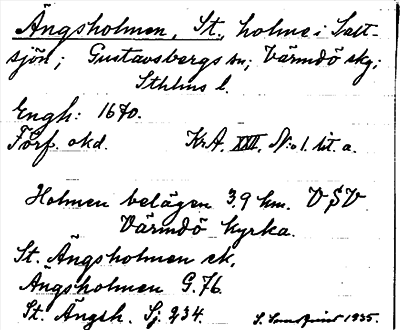 Ängsholmen, St., holme i Salt-
sjön; Gustavsbergs sn; Värmdö skg;
Sthlms l.
Engh: 1670.
Förf. okd. KrA. XXII, N:o 1. lit. a.
Holmen belägen 3.9 km. VSV
Värmdö kyrka.
St. Ängsholmen ek,
Ängsholmen G.76.
St. Ängsh. Sj. 234. 1935.